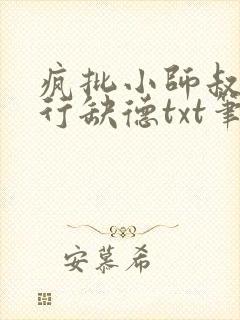 疯批小师叔
行缺德txt笔
安慕希